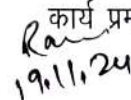 कार्य प्रम
19.11.24